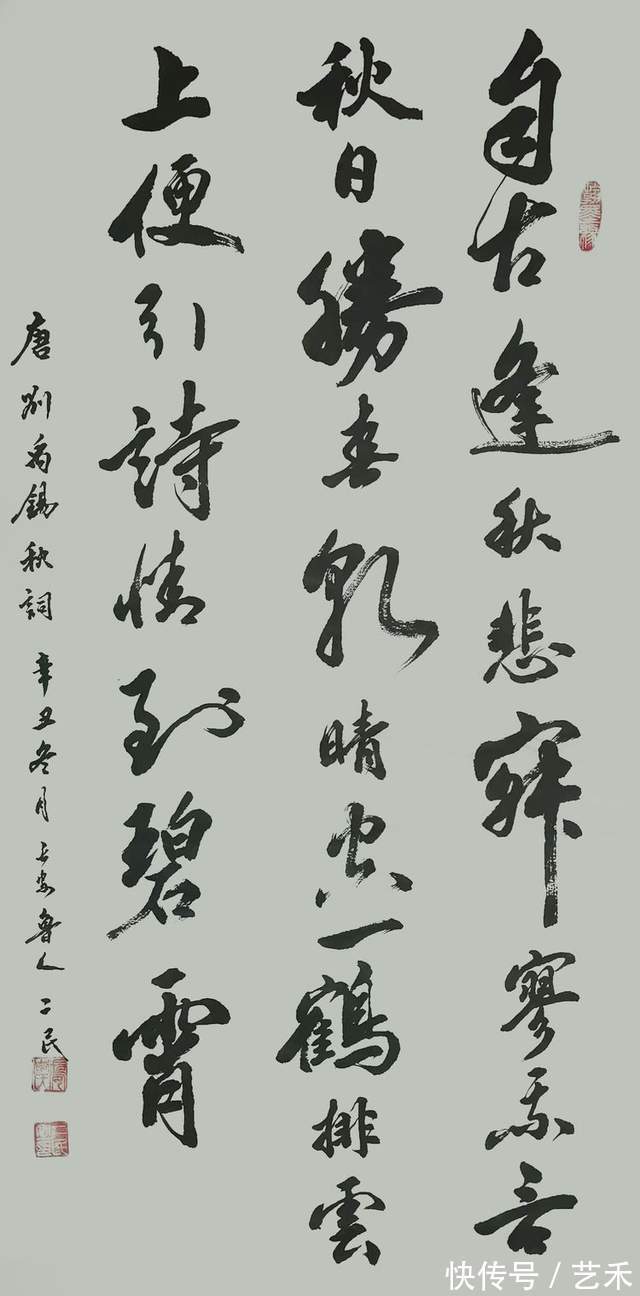 自古逢秋悲寂寥我言
秋日勝春朝晴空一鶴排雲
上便引詩情到碧霄
唐劉禹錫秋詞 辛丑冬月 長安魯人 二民
快传号 / 艺禾